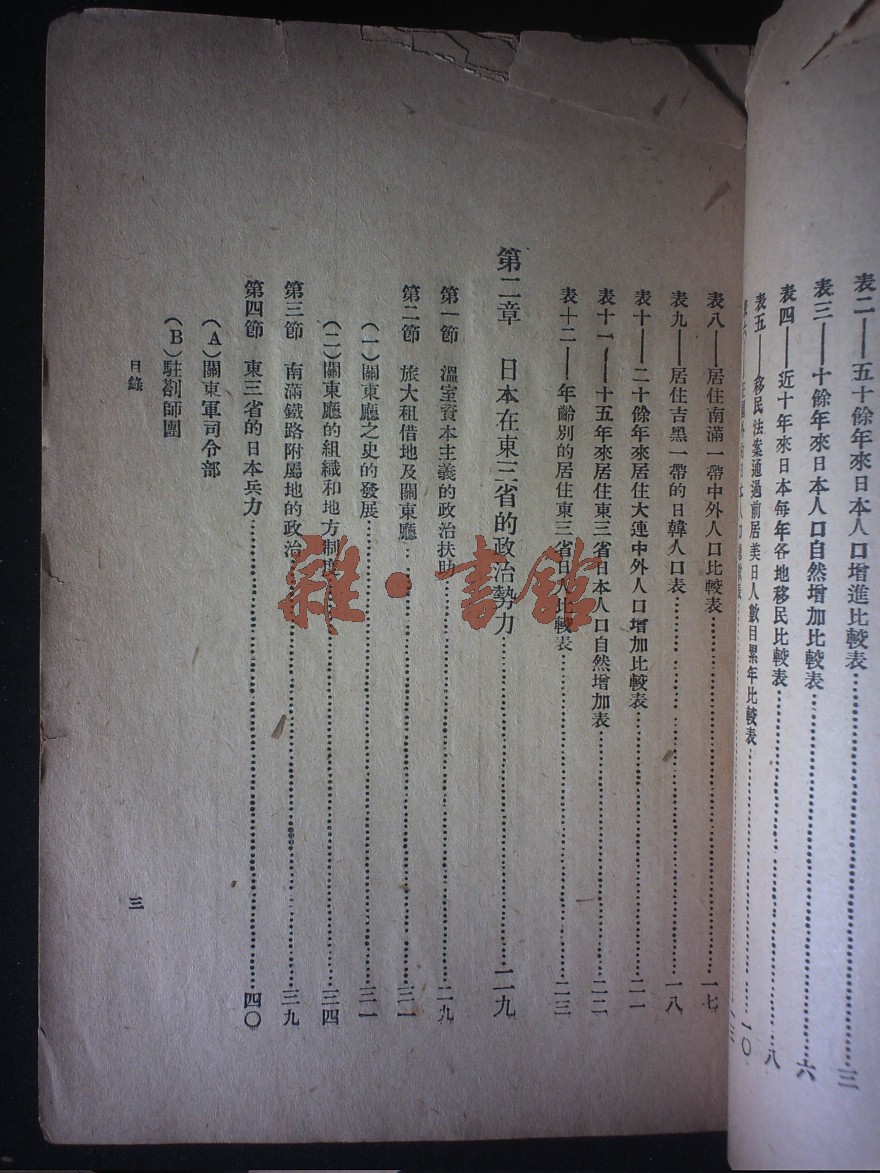 表二——五十餘年來日本人口增進比較表……三
表三——十餘年來日本人口自然增加比較表……六
表四——近十年來日本每年各地移民比較表……八
表五——移民法案通過前居美日人數目累年比較表……一〇
表八——居住南滿一帶中外人口比較表……一七
表九——居住吉黑一帶的日韓人口表……一八
表十——二十餘年來居住大連中外人口增加比較表……二一
表十一——十五年來居住東三省日本人口自然增加表……二二
表十二——年齡別的居住東三省日人比較表……二三
第二章 日本在東三省的政治勢力……二九
第一節 溫室資本主義的政治扶助……二九
第二節 旅大租借地及關東廳……三一
(一)關東廳之史的發展……三一
(二)關東廳的組織和地方制度……三四
第三節 南滿鐵路附屬地的政治……三九
第四節 東三省的日本兵力……四〇
(A)關東軍司令部
(B)駐劄師團
目錄
三
雜·書館